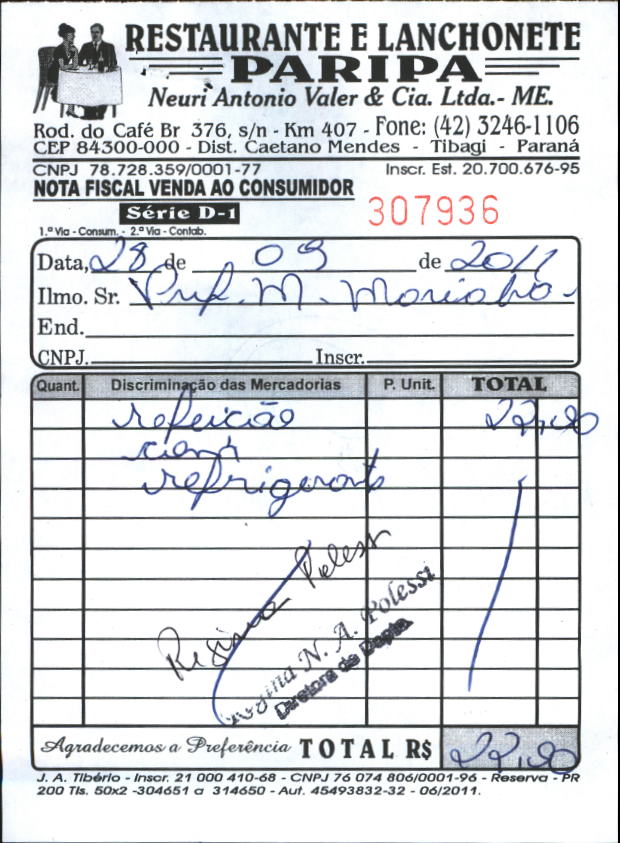 RESTAURANTE E LANCHONETE
PARIPA
Neuri Antonio Valer & Cia. Ltda.- ME.
Rod. do Café Br 376, s/n - Km 407 - Fone: (42) 3246-1106
CEP 84300-000 - Dist. Caetano Mendes - Tibagi - Paraná
CNPJ 78.728.359/0001-77 Inscr. Est. 20.700.676-95
NOTA FISCAL VENDA AO CONSUMIDOR
Série D-1 307936
1.ª Via - Consum. - 2.ª Via - Contab.
Data, 28 de 09 de 2011
Ilmo. Sr. Pref. M.
End.
CNPJ. Inscr.
Quant. Discriminação das Mercadorias P. Unit. TOTAL
refeição 22,00
com
refrigerante
Regina Polessi
Regina N. A. Polessi
Diretora de Depto.
Agradecemos a Preferência TOTAL R$ 22,00
J. A. Tibério - Inscr. 21 000 410-68 - CNPJ 76 074 806/0001-96 - Reserva - PR
200 Tls. 50x2 -304651 a 314650 - Aut. 45493832-32 - 06/2011.